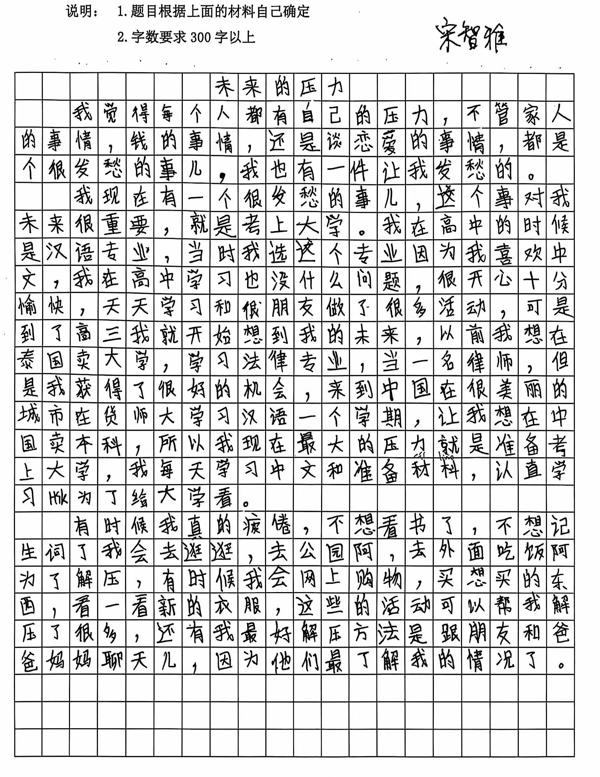 说明： 1.题目根据上面的材料自己确定
2.字数要求300字以上
宋智雅
未来的压力
我觉得每个人都有自己的压力，不管家人
的事情，钱的事情，还是谈恋爱的事情，都是
个很发愁的事儿，我也有一件让我发愁的。
我现在有一个很发愁的事儿，这个事对我
未来很重要，就是考上大学。我在高中的时候
是汉语专业，当时我选这个专业因为我喜欢中
文，我在高中学习也没什么问题，很开心十分
愉快，天天学习和很朋友做了很多活动，可是
到了高三我就开始想到我的未来，以前我想在
泰国卖大学，学习法律专业，当一名律师，但
是我获得了很好的机会，来到中国在很美丽的
城市在贵师大学习汉语一个学期，让我想在中
国卖本科，所以我现在最大的压力就是准备考
上大学，我每天学习中文和准备材料，认直学
习 Hsk 为了给大学看。
有时候我真的疲倦，不想看书了，不想记
生词了我会去逛逛，去公园阿，去外面吃饭阿
为了解压，有时候我会网上购物，买想买的东
西，看一看新的衣服，这些的活动可以帮我解
压了很多，还有我最好解压方法是跟朋友和爸
爸妈妈聊天儿，因为他们最了解我的情况了。